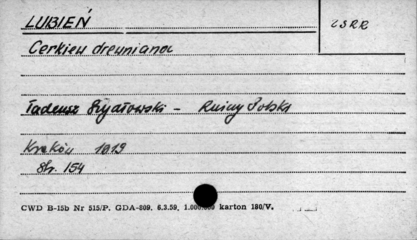 LUBIEŃ
ZSRR
Cerkiew drewniana
Tadeusz Szydłowski - Ruiny Polski
Kraków 1919
Str. 154
CWD B-15b Nr 515/P. GDA-809. 6.3.59. karton 180/V.